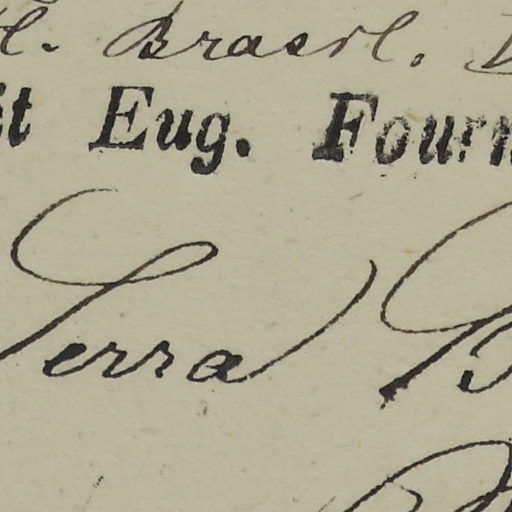 l. Brasil.
it Eug. Fourn
Serra